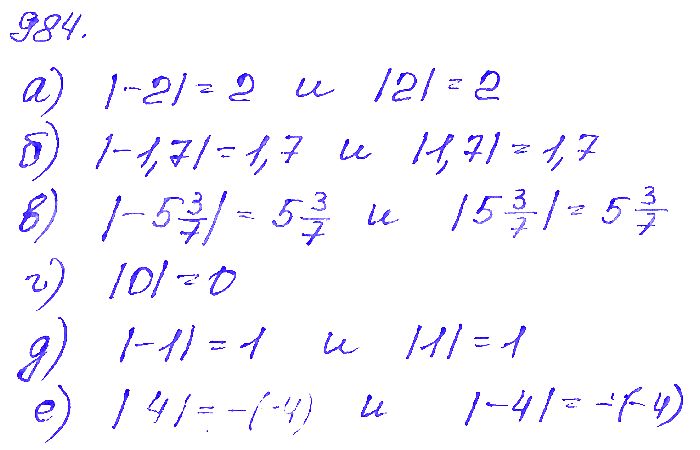 984.
а) |-2| = 2 и |2| = 2
б) |-1,7| = 1,7 и |1,7| = 1,7
в) |-5 3/7| = 5 3/7 и |5 3/7| = 5 3/7
г) |0| = 0
д) |-1| = 1 и |1| = 1
е) |4| = -(-4) и |-4| = -(-4)